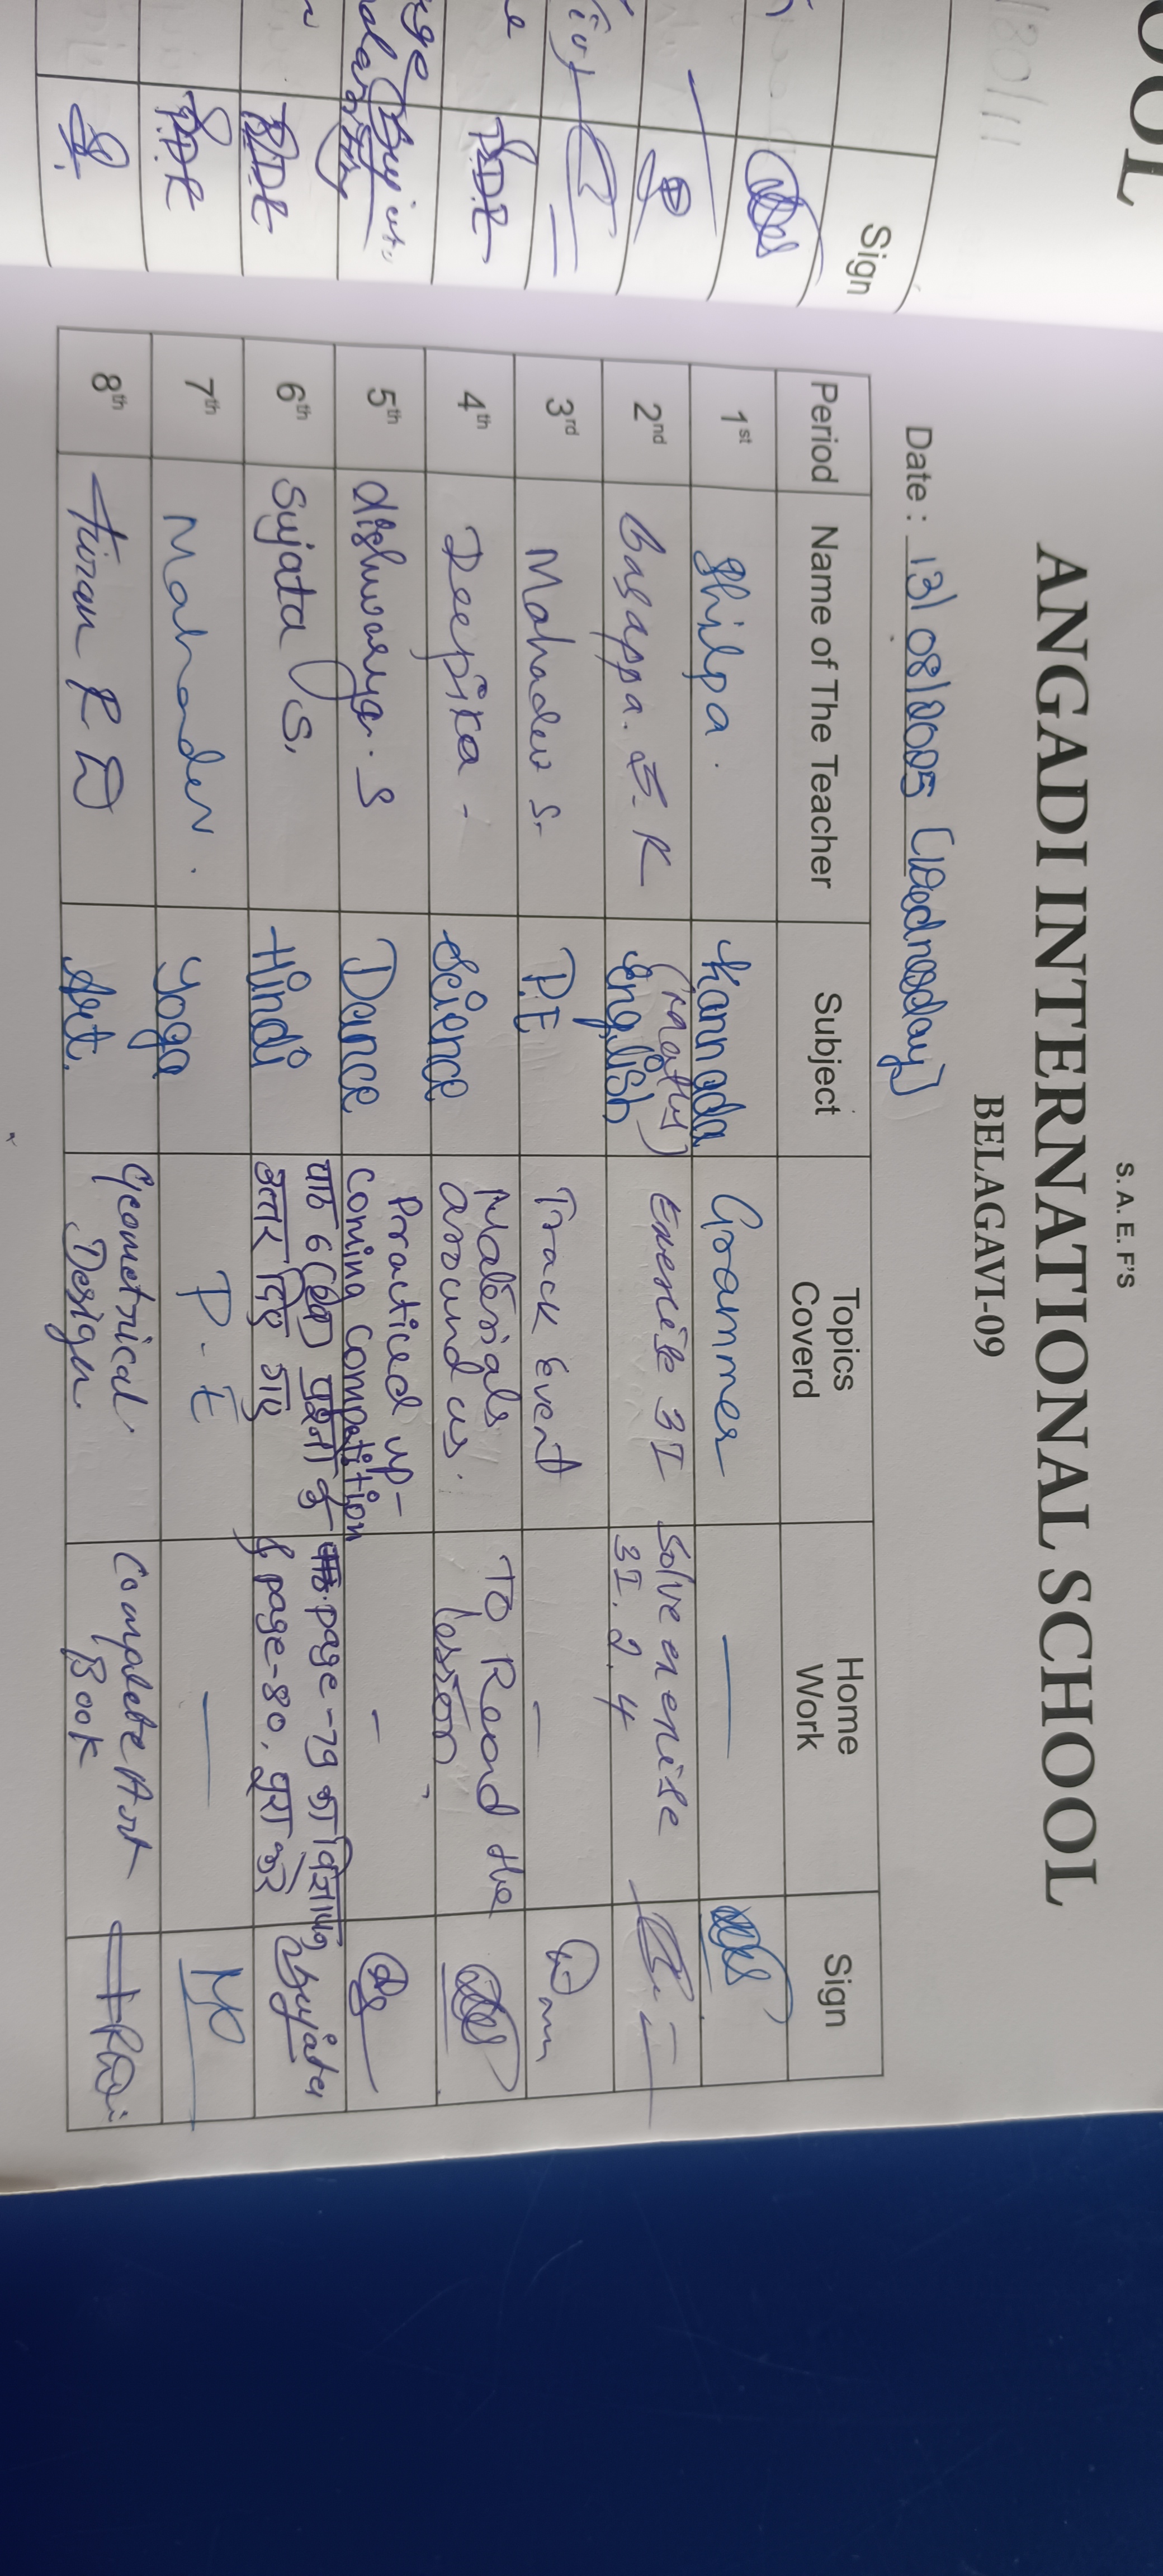 S. A. E. F'S
ANGADI INTERNATIONAL SCHOOL
BELAGAVI-09
Date : 13/08/2025 (Wednesday)
Period Name of The Teacher Subject Topics Coverd Home Work Sign
1st Shilpa. Kannada Grammer —
2nd Basappa. K (maths) English Exercise 3I Solve exercise 3I. 2, 4
3rd Mahadev S. P.E Track Event -
4th Deepika - Science Materials around us. To Read the lesson
5th Aishwarya. S Dance Practiced up-coming compatition -
6th Sujata S. Hindi पाठ 6 प्रश्नों के उत्तर दिए गए page-79 का विज्ञापन & page-80, पूरा करे Sujata
7th Mahadev. Yoga P.E —
8th Kiran R D Art. Geometrical Design Complete Art Book
OOL
Sign